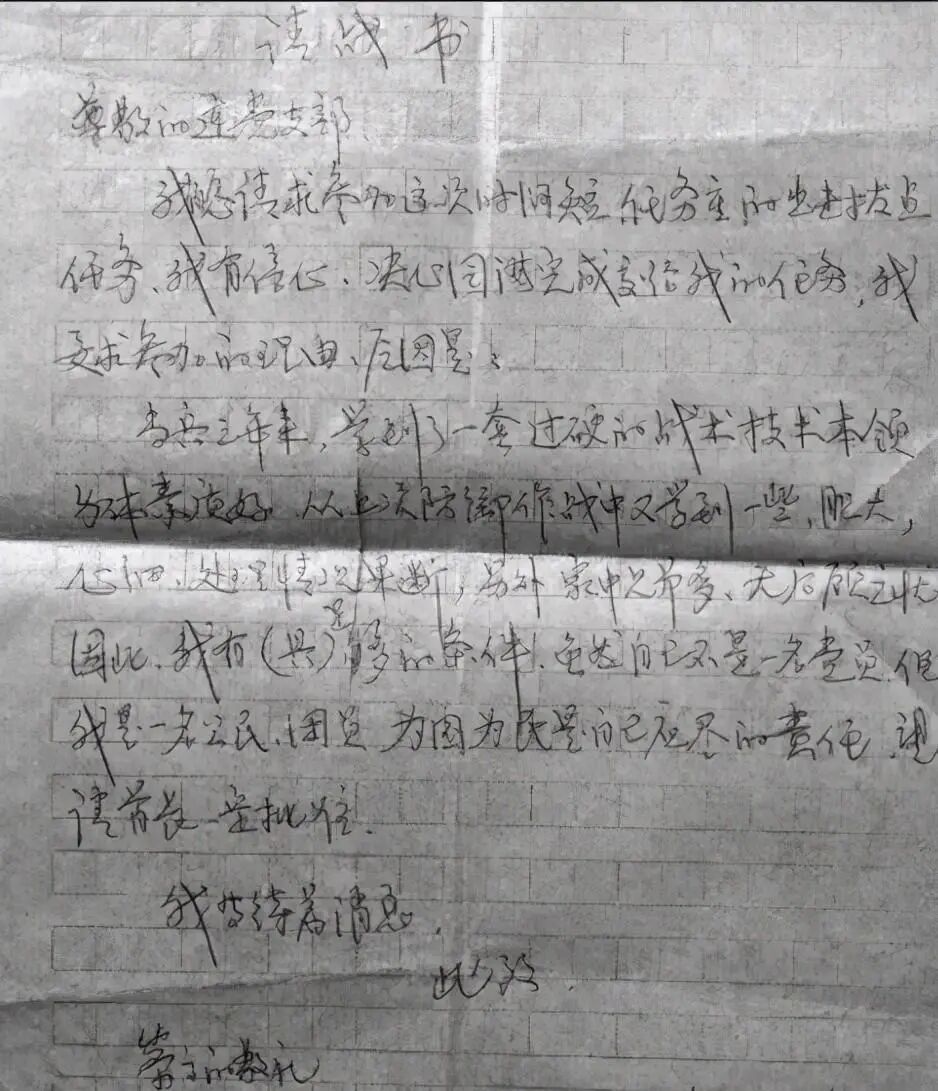 请战书
尊敬的连党支部
我恳请求参加这次时间短任务重的出击拔点
任务、我有信心、决心圆满完成交给我的任务,我
要求参加的理由、原因是:
当兵三年来,学到了一套过硬的战术技术本领
身体素质好、从上次防御作战中又学到一些,胆大,
心细、处理情况果断,另外家中兄弟多、无后顾之忧
因此、我有(具)足够的条件、虽然自已不是一名党员、但
我是一名公民、团员 为国为民是自已应尽的责任、望
请首长一定批准.
我等待着消息.
此致.
崇高的敬礼